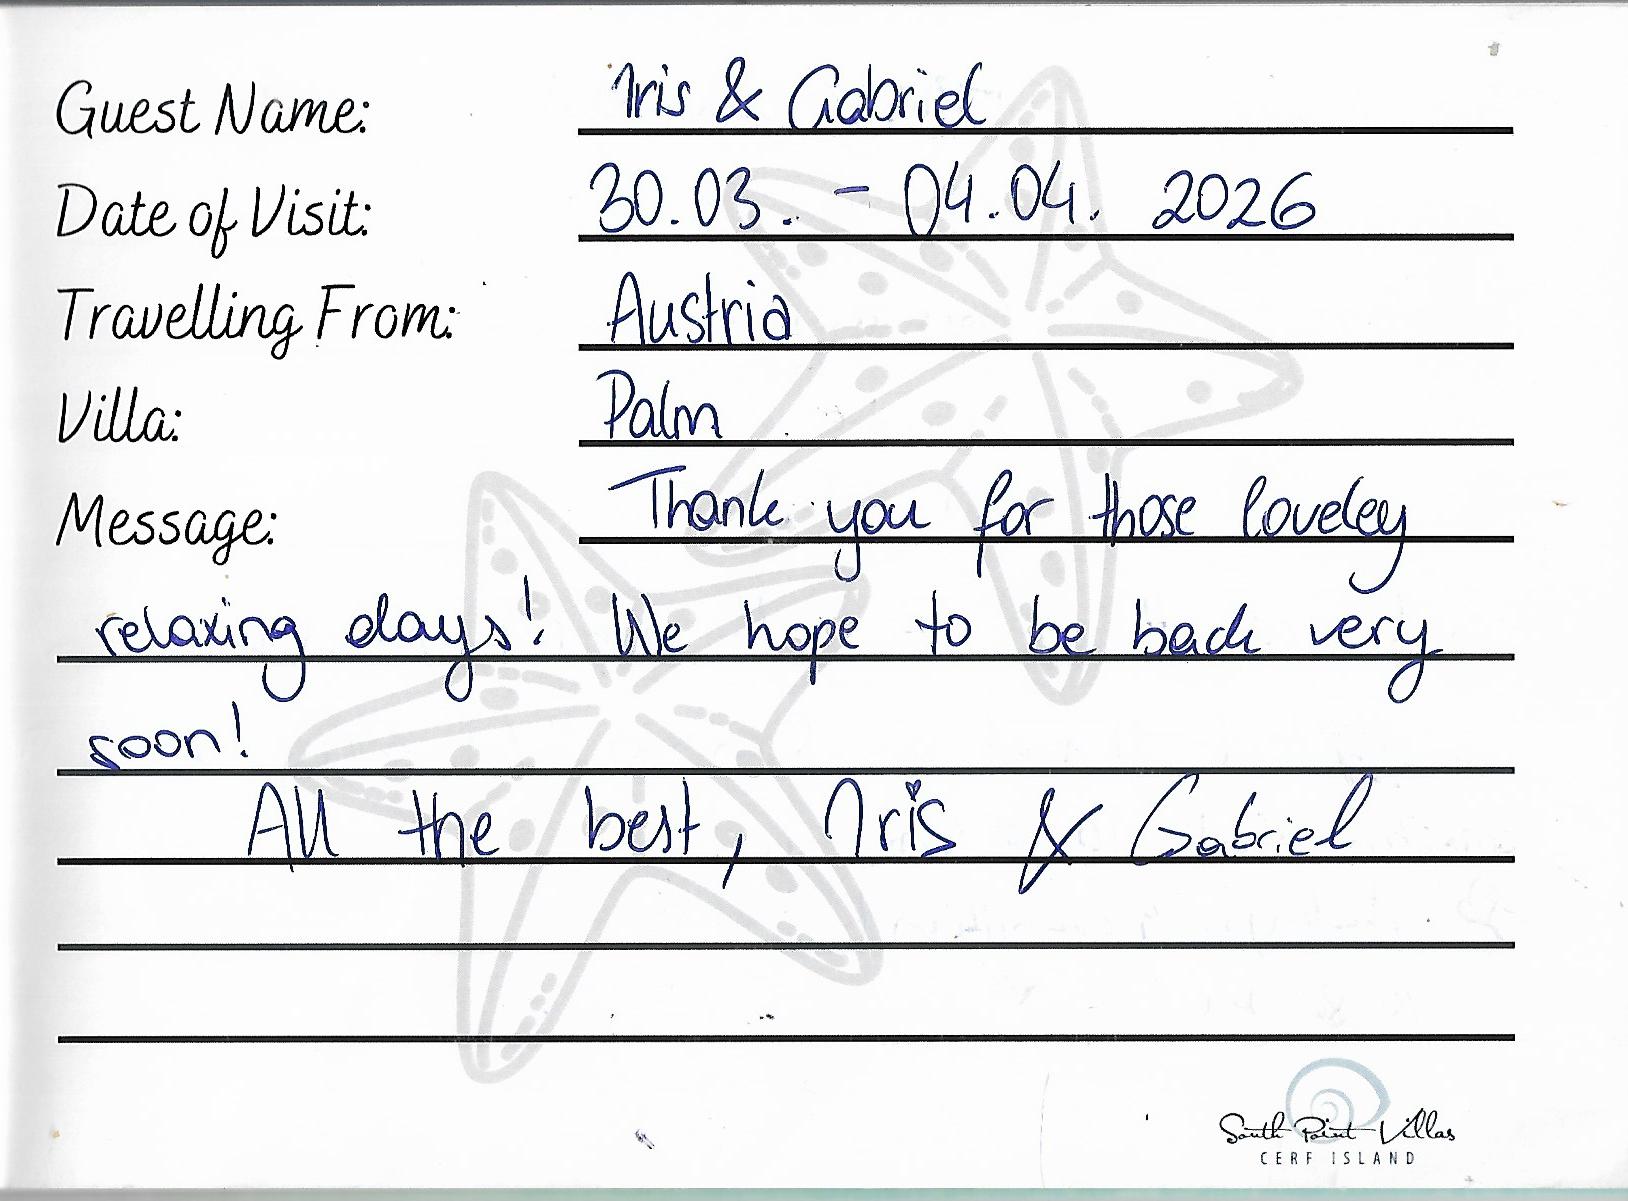 Guest Name: Iris & Gabriel
Date of Visit: 30.03. - 04.04. 2026
Travelling From: Austria
Villa: Palm
Message: Thank you for those loveley
relaxing days! We hope to be back very
soon!
All the best, Iris & Gabriel
South Point Villas
CERF ISLAND